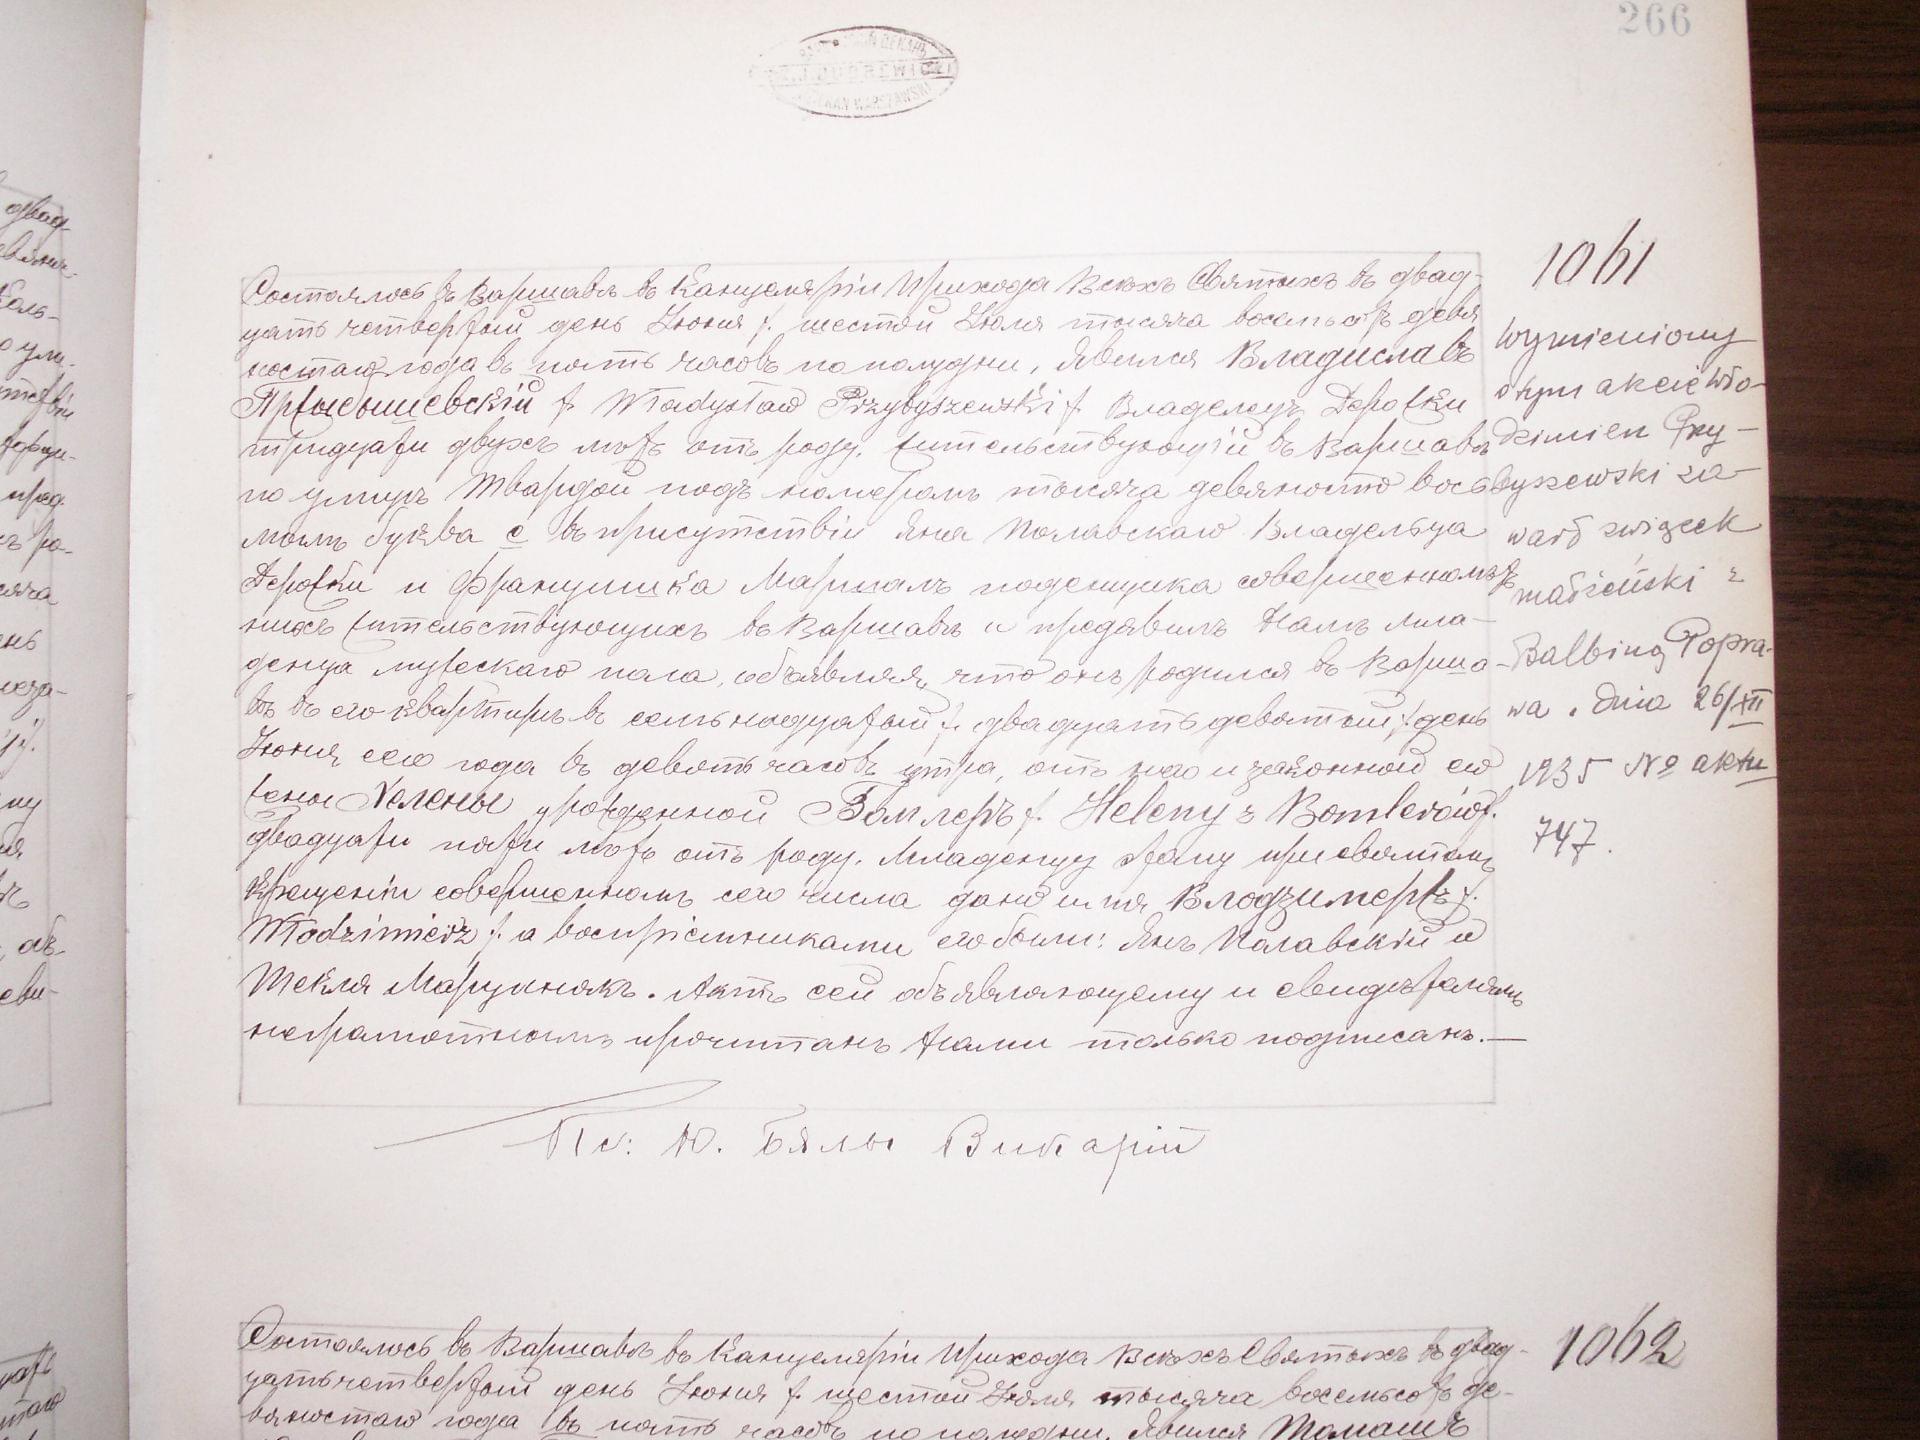 266
DEKAN WARSZAWSKI
1061
Состоялось въ Варшавѣ въ Канцеляріи Прихода Всѣхъ Святыхъ въ двад-
цать четвертый день Іюня /: шестой Іюля тысяча восемьсотъ девя
ностаго года въ пять часовъ по полудни, Явился Владиславъ
Пржибышевскій /: Władysław Przybyszewski /: Владелецъ Дорожки
тридцати двухъ лѣтъ отъ роду, жительствующій въ Варшавѣ
по улицѣ Твардой подъ номеромъ тысяча девяносто вось
мымъ буква с въ присутствіи Яна Полавскаго Владельца
Дорожки и Францишка Маршалъ поденщика совершеннолѣт
нихъ жительствующихъ въ Варшавѣ и предъявилъ Намъ мла-
денца мужескаго пола, объявляя, что онъ родился въ Варша-
вѣ въ его квартирѣ въ семьнадцатый /: двадцать девятый /: день
Іюня сего года въ девять часовъ утра, отъ него и законной его
жены Хелены урожденной Бомлеръ /: Heleny z Bomlerów /:
двадцати пяти лѣтъ отъ роду. Младенцу этому при святомъ
крещеніи совершенномъ сего числа дано имя Влодзимержъ /:
Włodzimierz /: а воспріемниками его были: Янъ Полавскій и
Текля Марцинякъ. Актъ сей объявляющему и свидѣтелямъ
неграмотнымъ прочитанъ Нами только подписанъ.—
Кс: Ю. Бялы Викарій
Wymieniony
w tym akcie Wło-
dzimierz Przy-
byszewski za-
warł związek
małżeński z
Balbiną Popra-
wa. Dnia 26/XII
1935 № aktu
747.
1062
Состоялось въ Варшавѣ въ Канцеляріи Прихода Всѣхъ Святыхъ въ двад-
цать четвертый день Іюня /: шестой Іюля тысяча восемьсотъ де-
вяностаго года въ пять часовъ по полудни, Явился Томашъ